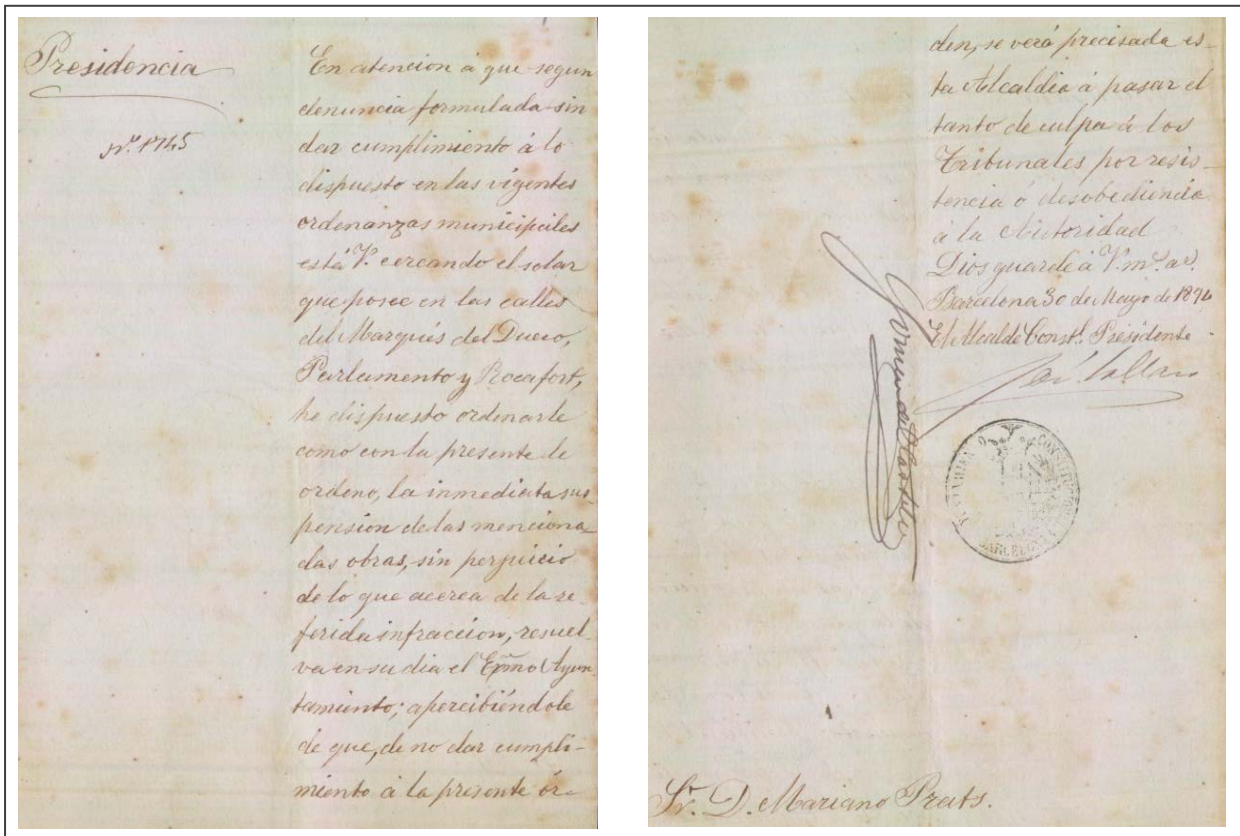 Presidencia
Nº. 1745
En atencion á que segun
denuncia formulada sin
dar cumplimiento á lo
dispuesto en las vigentes
ordenanzas municipales
está V. cercando el solar
que posee en las calles
del Marqués del Duero,
Parlamento y Rocafort,
he dispuesto ordenarle
como con la presente le
ordeno, la inmediata sus-
pension de las menciona-
das obras, sin perjuicio
de lo que acerca de la re-
ferida infraccion, resuel-
va en su dia el Exmo Ayun-
tamiento; apercibiéndole
de que, de no dar cumpli-
miento á la presente ór-
den, se verá precisada es-
ta Alcaldia á pasar el
tanto de culpa á los
Tribunales por resis-
tencia ó desobediencia
á la Autoridad
Dios guarde á V. ms. as.
Barcelona 30 de Mayo de
El Alcalde Const. Presidente
AYUNTAMIENTO CONSTITUCIONAL
BARCELONA
Sr. D. Mariano Prats.